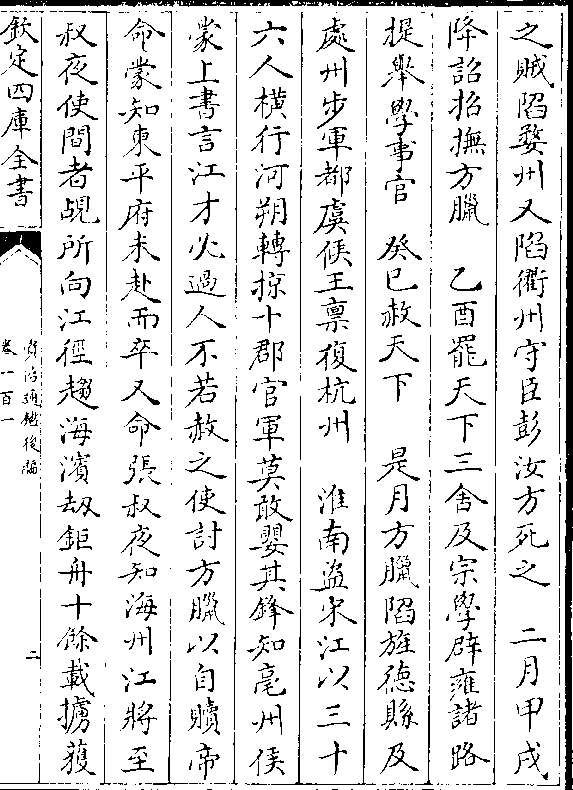 之賊陷婺州又陷衢州守臣彭汝方死之　二月甲戌
降詔招撫方臘　乙酉罷天下三舍及宗學辟雍諸路
提舉學事官　癸巳赦天下　是月方臘陷旌德縣及
處州步軍都虞候王禀復杭州　淮南盗宋江以三十
六人横行河朔轉掠十郡官軍莫敢嬰其鋒知亳州侯
蒙上書言江才必過人不若赦之使討方臘以自贖帝
命蒙知東平府未赴而卒又命張叔夜知海州江將至
叔夜使間者覘所向江徑趨海濱刼鉅舟十餘載擄獲
欽定四庫全書
資治通鑑後編
卷一百一
二